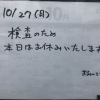 10/27(月)
検査のため
本日はお休みいたします